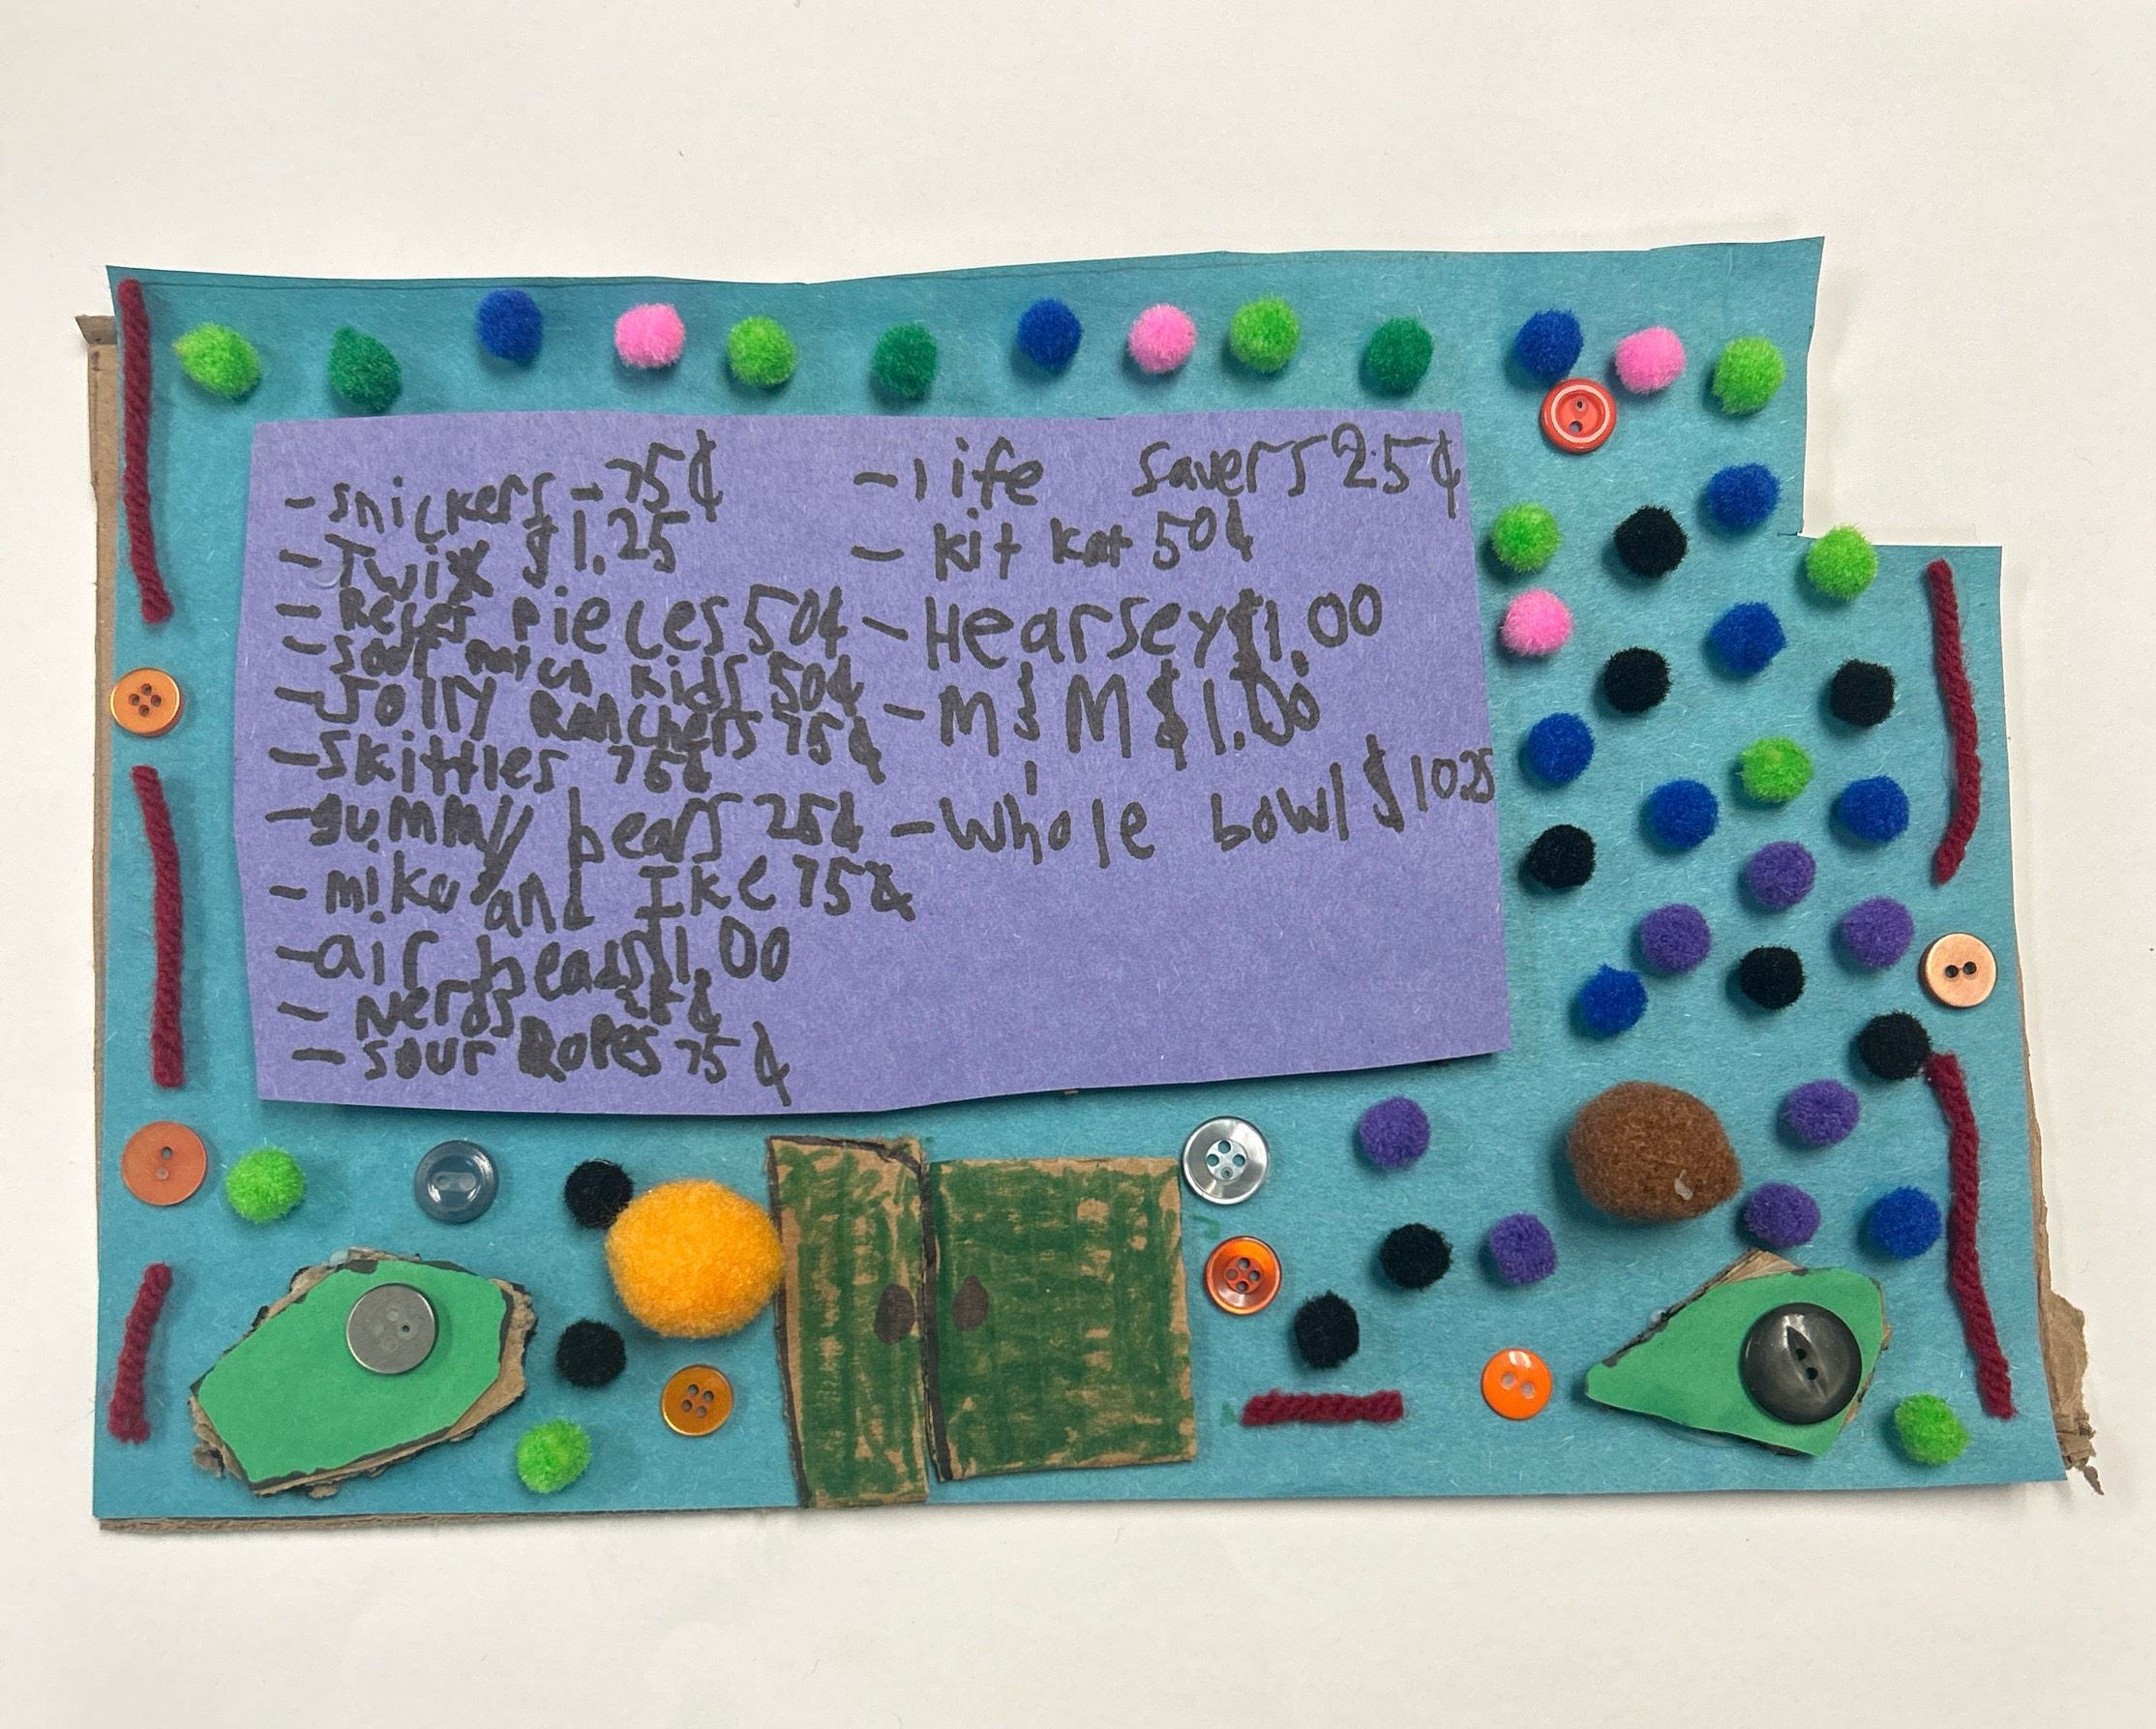 - snickers - 75¢
- Twix $1.25
- Reses pieces 50¢
- sour patch kids 50¢
- Jolly Ranchers 75¢
- skittles 75¢
- gummy bears 25¢
- mike and Ike 75¢
- air heads $1.00
- Nerds
- sour Ropes 75¢
- life savers 25¢
- kit kat 50¢
- Hearsey $1.00
- M & M $1.00
- whole bowl $10.25